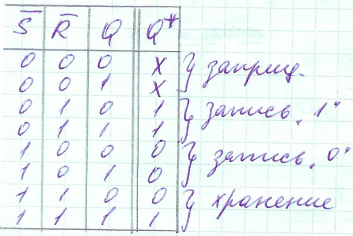 S̅ R̅ Q Q*
0 0 0 X } запрещ.
0 0 1 X
0 1 0 1 } запись „1"
0 1 1 1
1 0 0 0 } запись „0"
1 0 1 0
1 1 0 0 } хранение
1 1 1 1